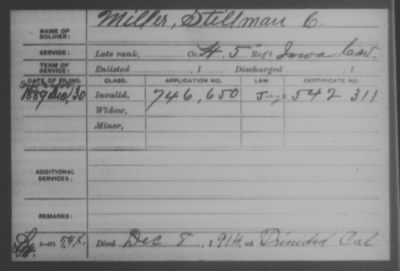 Miller, Stillman C.
NAME OF SOLDIER:
SERVICE: Late rank, Co. H. 5" Reg't Iowa Cav.
TERM OF SERVICE: Enlisted , 1 Discharged , 1
DATE OF FILING. CLASS. APPLICATION NO. LAW. CERTIFICATE NO.
1889 Dec/30 Invalid, 746,650 542 311
Widow,
Minor,
ADDITIONAL SERVICES:
REMARKS:
Died Dec 8, 1914, at Trinidad Cal